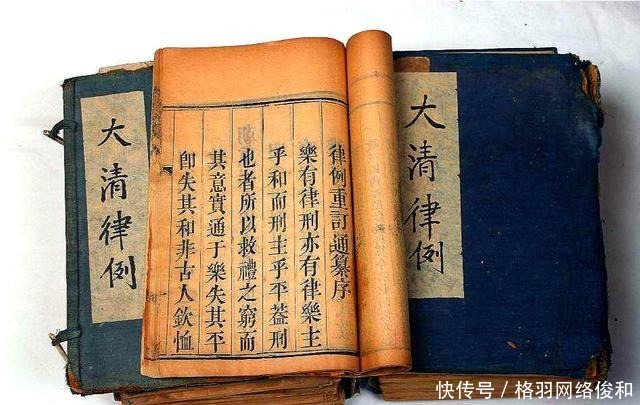 大清律例
律例重訂通纂序
樂有律刑亦有律樂主
乎和而刑主乎平葢刑
也者所以救禮之窮而
其意實通于樂失其平
卽失其和非古人欽恤
大清律例
快传号 / 格羽网络俊和